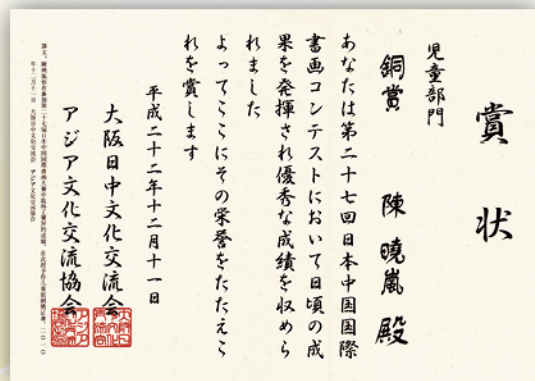 賞状
児童部門
銅賞 陳曉嵐殿
あなたは第二十七回日本中国国際
書画コンテストにおいて日頃の成
果を発揮され優秀な成績を収めら
れました
よってここにその栄誉をたたえこ
れを賞します
平成二十二年十二月十一日
大阪日中文化交流会
アジア文化交流協会
年十二月十一日 大阪日中文化交流会 アジア文化交流協会